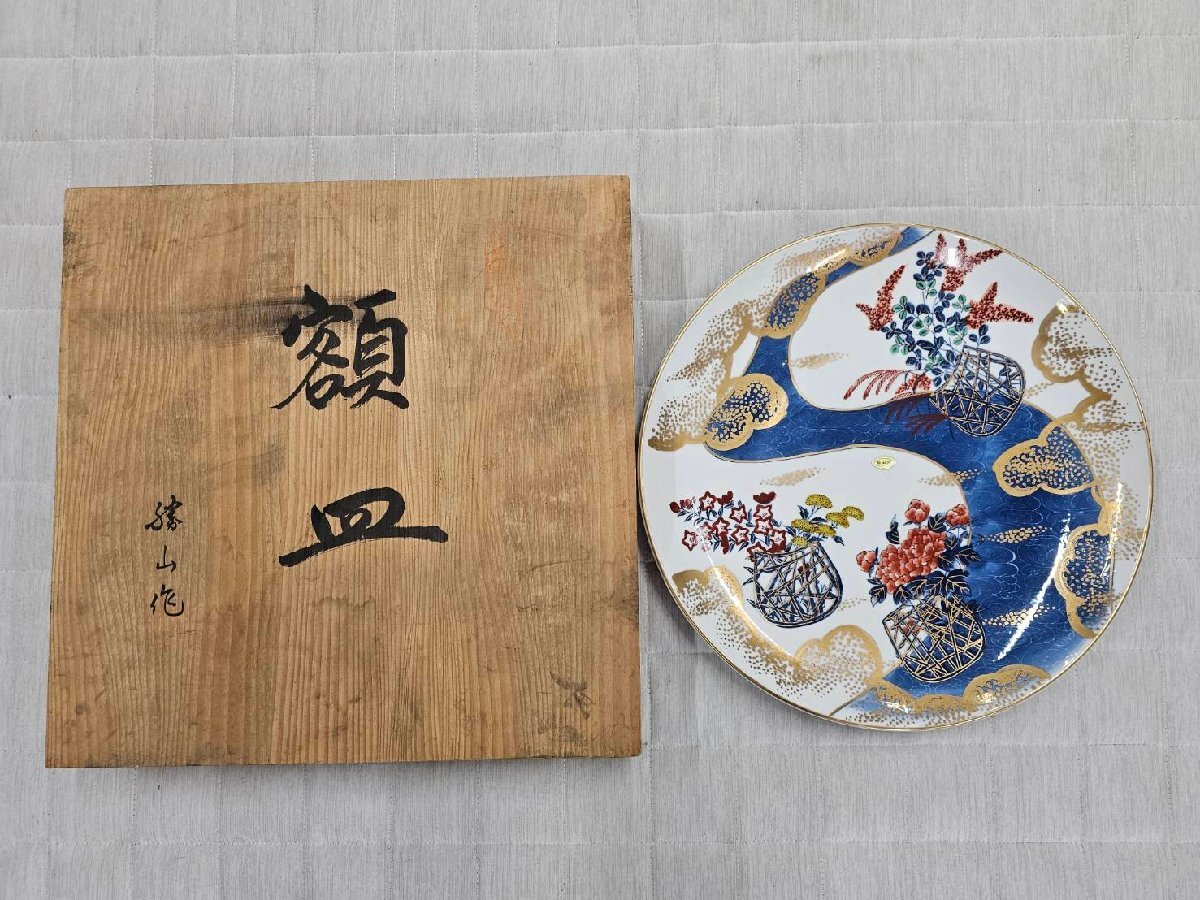 額皿
勝山作